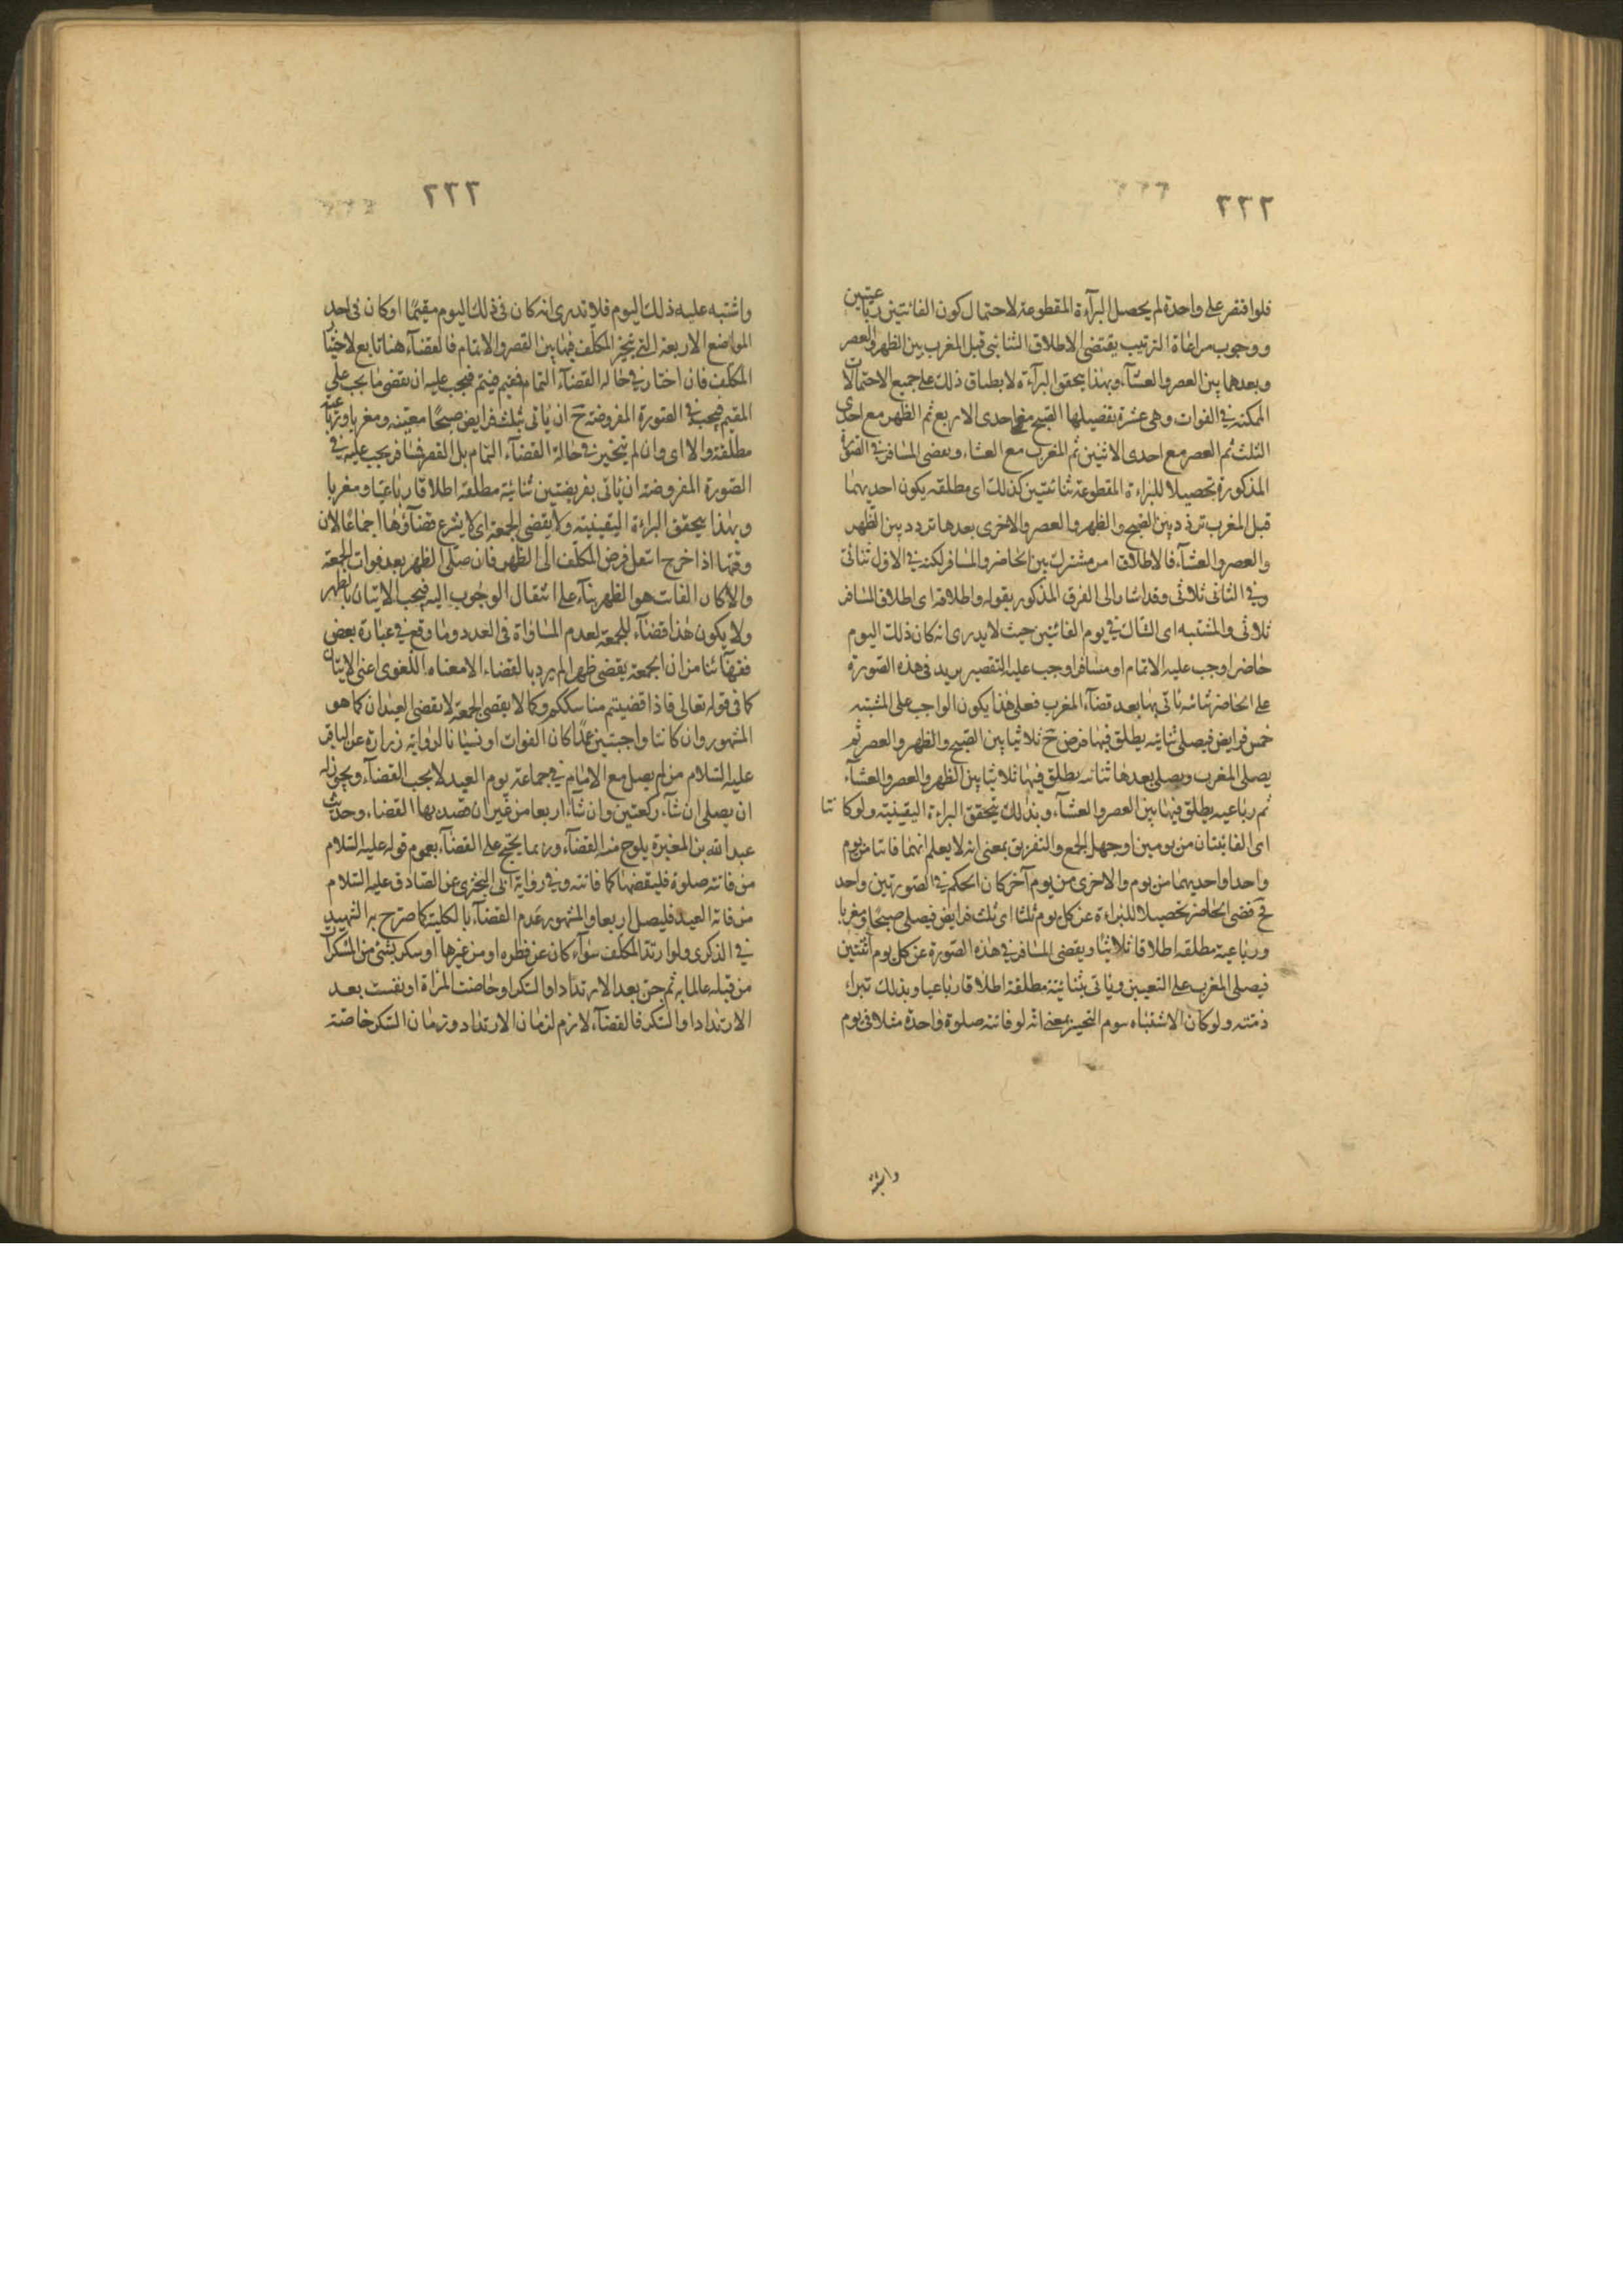 ٢٣٢
فلو اقتصر على واحدة لم يحصل البرآءة المقطوعة لاحتمال كون الفائتين رباعيتين
ووجوب مراعاة الترتيب يقتضى الاطلاق الثنائى قبل المغرب بين الظهر والعصر
وبعدهما بين العصر والعشآء وبهذا يتحقق البرآءة لانطباق ذلك على جميع الاحتمالات
الممكنة فى الفوات وهى عشرة تفصيلها الصبح مع احدى الاربع ثم الظهر مع احدى
الثلث ثم العصر مع احدى الاثنين ثم المغرب مع العشاء ويقضى المسافر فى الصورة
المذكورة تحصيلا للبراءة المقطوعة ثنائتين كذلك اى مطلقه يكون احديهما
قبل المغرب تردد بين الصبح والظهر والعصر والاخرى بعدها تردد بين الظهر
والعصر والعشآء فالاطلاق امر مشترك بين الحاضر والمسافر لكنه فى الاول ثنائى
وفى الثانى ثلاثى وقد اشار الى الفرق المذكور بقوله واطلاقه اى اطلاق المسافر
ثلاثى والمشتبه اى الشاك فى يوم الفائتين حيث لا يدرى انه كان ذلك اليوم
حاضرا وجب عليه الاتمام او مسافرا وجب عليه التقصير يزيد فى هذه الصورة
على الحاضر ثنائيه يأتى بها بعد قضآء المغرب فعلى هذا يكون الواجب على المشتبه
خمس فرايض فيصلى ثنائية يطلق فيها فرض ح ثلاثيا بين الصبح والظهر والعصر ثم
يصلى المغرب ويصلى بعدها ثنائيه يطلق فيها ثلاثيا بين الظهر والعصر والعشآء
ثم رباعيه يطلق فيها بين العصر والعشآء وبذلك يتحقق البراءة اليقينية ولو كانتا
اى الفائتتان من يومين او جهل الجمع والتفريق بمعنى انه لا يعلم انهما فاتتا من يوم
واحد او احديهما من يوم والاخرى من يوم آخر كان الحكم فى الصورتين واحد
فح قضى الحاضر تحصيلا للبراءة عن كل يوم ثلثا اى ثلث فرايض فيصلى صبحا ومغربا
ورباعية مطلقه اطلاقا ثلاثيا ويقضى المسافر فى هذه الصورة عن كل يوم اثنتين
فيصلى المغرب على التعيين ويأتى بثنائية مطلقة اطلاقا رباعيا وبذلك تبراء
ذمته ولو كان الاشتباه بيوم التخيير بمعنى انه لو فاتته صلوة واحدة مثلا فى يوم
واشتبه
٢٣٣
واشتبه عليه ذلك اليوم فلا تدرى انه كان فى ذلك اليوم مقيمًا او كان فى احد
المواضع الاربعة التى تخير المكلف فيها بين القصر والاتمام فالقضآء هنا تابع لاختيار
المكلف فان اختار فى حالة القضآء التمام فقيم فيتم فيجب عليه ان يقضى ما يجب على
المقيم فيجب فى الصورة المفروضة ح ان يأتى بثلث فرايض صبحًا معينه ومغربا ورباعية
مطلقة والا اى وان لم يتخير فى حالة القضآء التمام بل القصر فمسافر يجب عليه فى
الصورة المفروضة ان يأتى بفريضتين ثنائية مطلقة اطلاقا رباعيا ومغربا
وبهذا يتحقق البراءة اليقينية ولا يقضى الجمعة اى لا يشرع قضآؤها اجماعًا لان
وقتها اذا خرج انتقل فرض المكلف الى الظهر فان صلى الظهر بعد فوات الجمعة
والا كان الفائت هو الظهر بنآء على انتقال الوجوب اليه فيجب الاتيان بالظهر
ولا يكون هذا قضآء للجمعة لعدم المساواة فى العدد وما وقع فى عبارة بعض
فقهآئنا من ان الجمعة يقضى ظهرا لم يرد بالقضاء الا معناه اللغوى اعنى الاتيان
كما فى قوله تعالى فاذا قضيتم مناسككم وكما لا يقضى الجمعة لا يقضى العيدان كما هو
المشهور وان كانتا واجبتين عمدًا كان الفوات او نسيانا لرواية زرارة عن الباقر
عليه السلام من لم يصل مع الامام فى جماعة يوم العيد لا يجب القضآء ويجوز له
ان يصلى ان شآء ركعتين وان شآء اربعا من غير ان قصد بها القضاء وحديث
عبد الله بن المغيرة يلوح منه القضآء وربما يحتج على القضآء بعموم قوله عليه السلام
من فاتته صلوة فليقضها كما فاتته وفى رواية ابى البخترى عن الصادق عليه السلام
من فاته العيد فليصل اربعا والمشهور عدم القضآء بالكلية كما صرح به الشهيد
فى الذكرى ولو ارتد المكلف سوآء كان عن فطرة او من غيرها او سكر بشئ من المسكرات
من قبله عالما به ثم جن بعد الارتداد او السكر او حاضت المرأة او نفست بعد
الارتداد او السكر فالقضآء لازم لزمان الارتداد وزمان السكر خاصّة